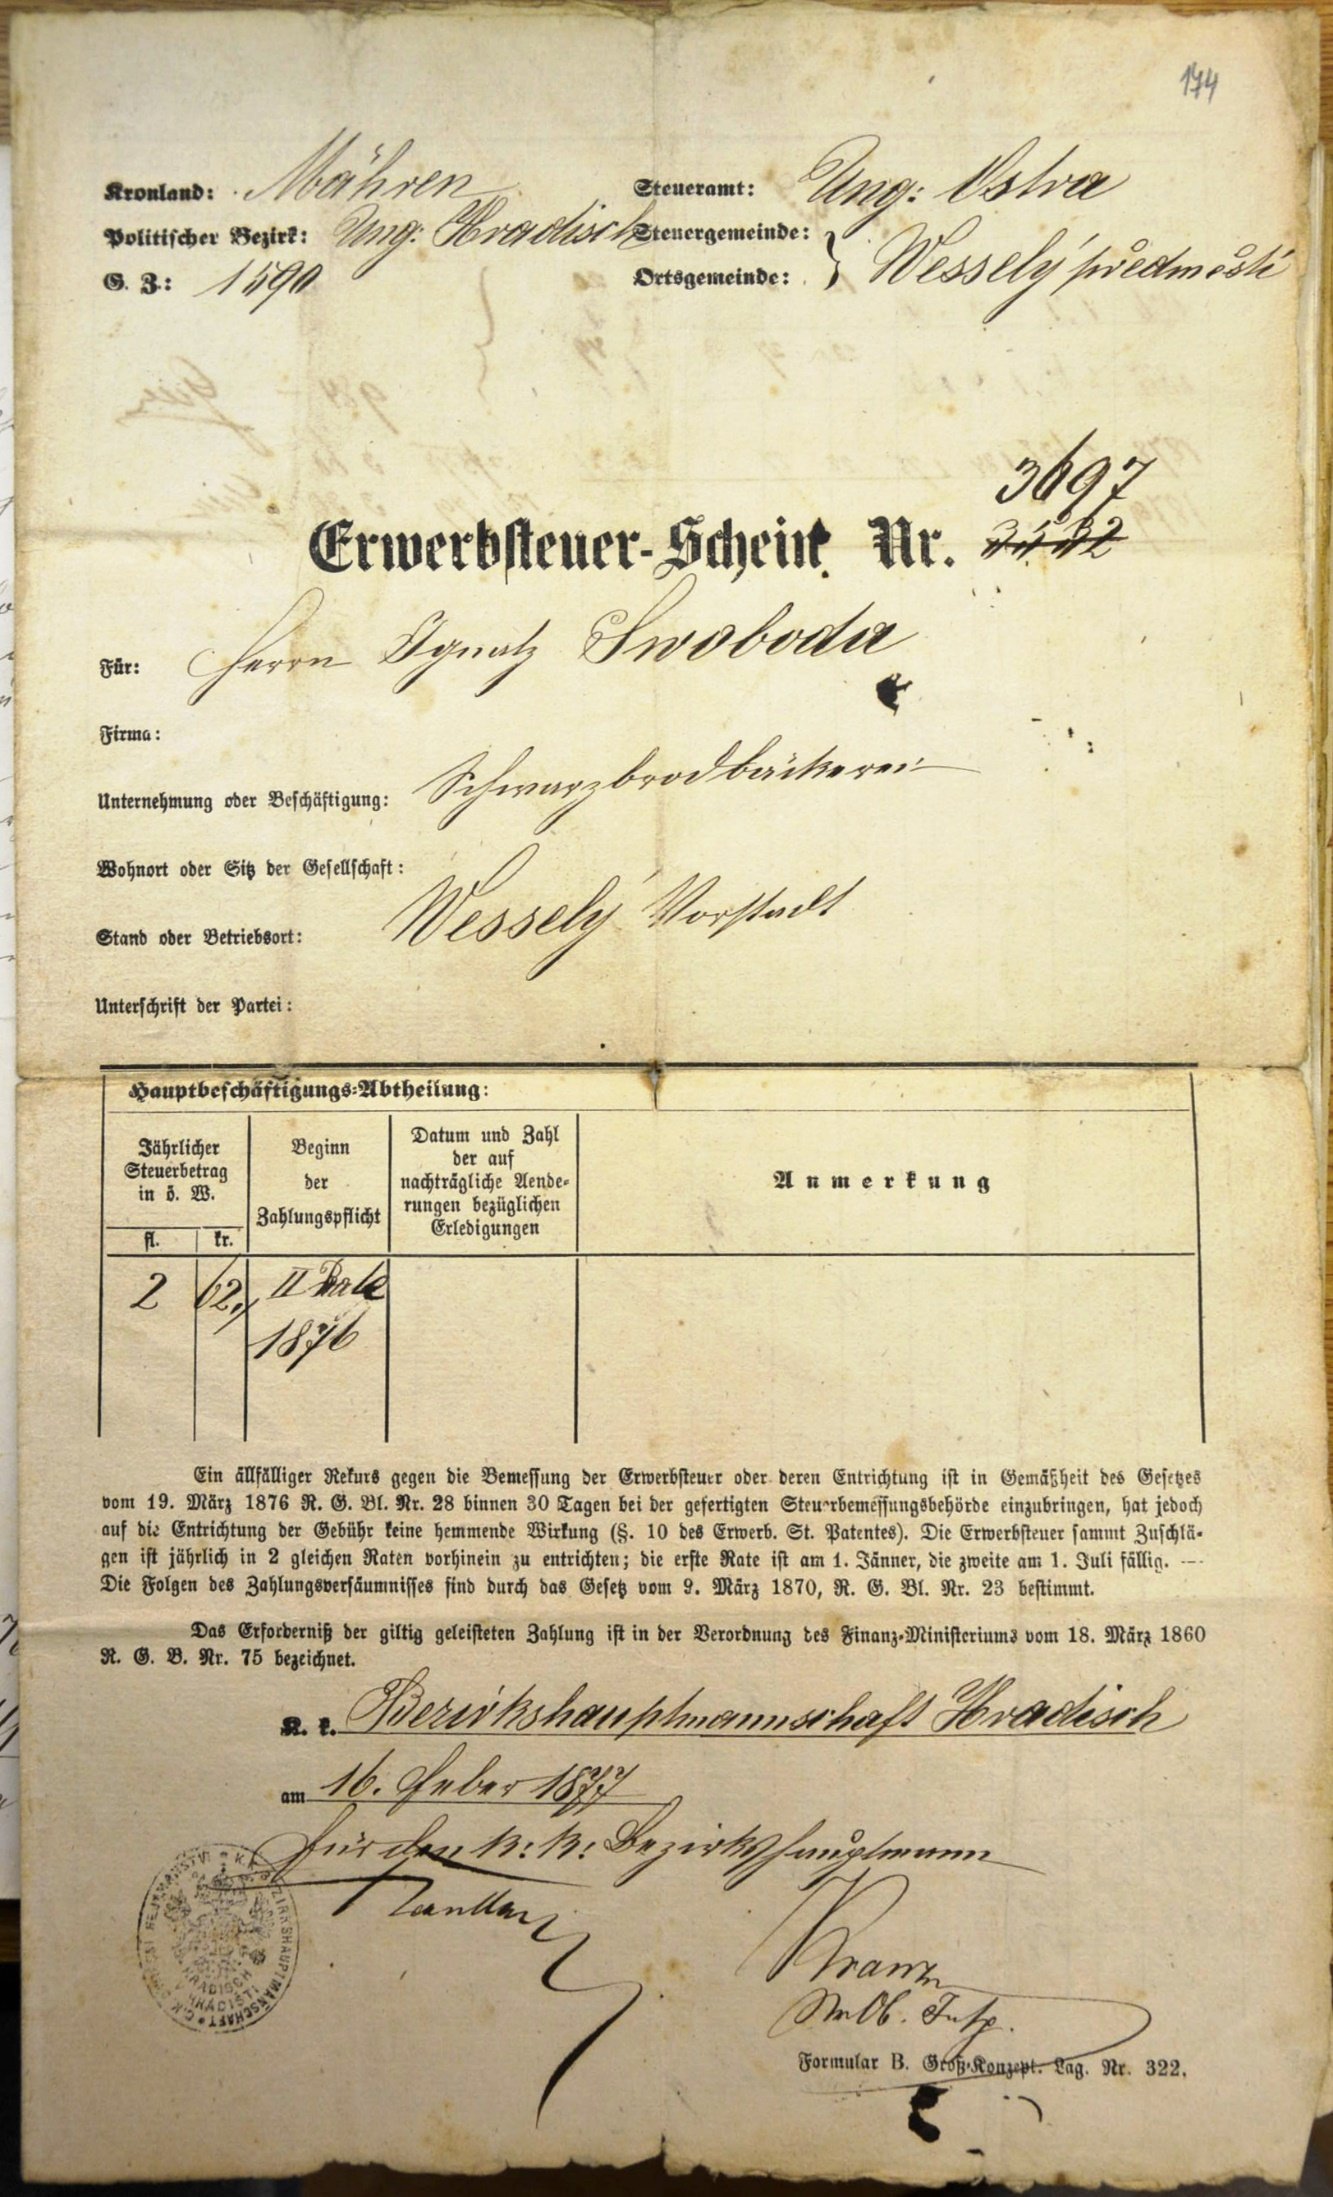 174
Kronland: Mähren
Steueramt: Ung: Ostra
Politischer Bezirk: Ung: Hradisch
Steuergemeinde:
G. Z.: 1590
Ortsgemeinde: } Wesselý předměstí
3697
Erwerbsteuer-Schein Nr. 3532
Für: Herrn Ignatz Swoboda
Firma:
Unternehmung oder Beschäftigung: Schwarzbrodbäckerei
Wohnort oder Sitz der Gesellschaft:
Stand oder Betriebsort: Wesselý Vorstadt
Unterschrift der Partei:
Hauptbeschäftigungs-Abtheilung:
Jährlicher
Steuerbetrag
in ö. W.
fl. kr.
Beginn
der
Zahlungspflicht
Datum und Zahl
der auf
nachträgliche Aende-
rungen bezüglichen
Erledigungen
Anmerkung
2 62 II Rate
1876
Ein allfälliger Rekurs gegen die Bemessung der Erwerbsteuer oder deren Entrichtung ist in Gemäßheit des Gesetzes
vom 19. März 1876 R. G. Bl. Nr. 28 binnen 30 Tagen bei der gefertigten Steuerbemessungsbehörde einzubringen, hat jedoch
auf die Entrichtung der Gebühr keine hemmende Wirkung (§. 10 des Erwerb. St. Patentes). Die Erwerbsteuer sammt Zuschlä-
gen ist jährlich in 2 gleichen Raten vorhinein zu entrichten; die erste Rate ist am 1. Jänner, die zweite am 1. Juli fällig. —
Die Folgen des Zahlungsversäumnisses sind durch das Gesetz vom 9. März 1870, R. G. Bl. Nr. 23 bestimmt.
Das Erforderniß der giltig geleisteten Zahlung ist in der Verordnung des Finanz-Ministeriums vom 18. März 1860
R. G. B. Nr. 75 bezeichnet.
K. k. Bezirkshauptmannschaft Hradisch
am 16. Feber 1877
Für den k: k: Bezirkshauptmann
K. K. BEZIRKSHAUPTMANSCHAFT
HRADISCH
V HRADIŠTI
Ob. Insp.
Formular B. Groß-Konzept. Lag. Nr. 322.